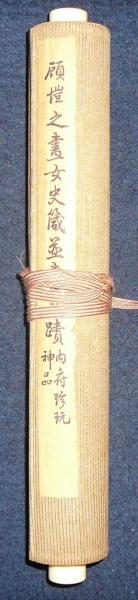 顧愷之畫女史箴並
蹟內府珍玩
神品